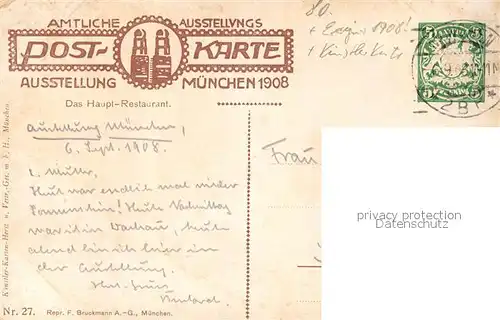 AMTLICHE AUSSTELLVNGS
POST- KARTE
AUSSTELLUNG MÜNCHEN 1908
80.
+ Ereignis 1908!
+ Künstlerkarte
5 5
B
Das Haupt-Restaurant.
Ausstellung München,
6. Sept. 1908.
L. Mutter,
Heut war endlich mal wieder
Sonnenschein! Heute Nachmittag
war ich in Dachau, heute
abend bin ich hier in
der Ausstellung.
Frau
privacy protection
watermark
Künstler-Karten-Herst. u. Vertr.-Ges. m. b. H., München.
Nr. 27. Repr. F. Bruckmann A.-G., München.